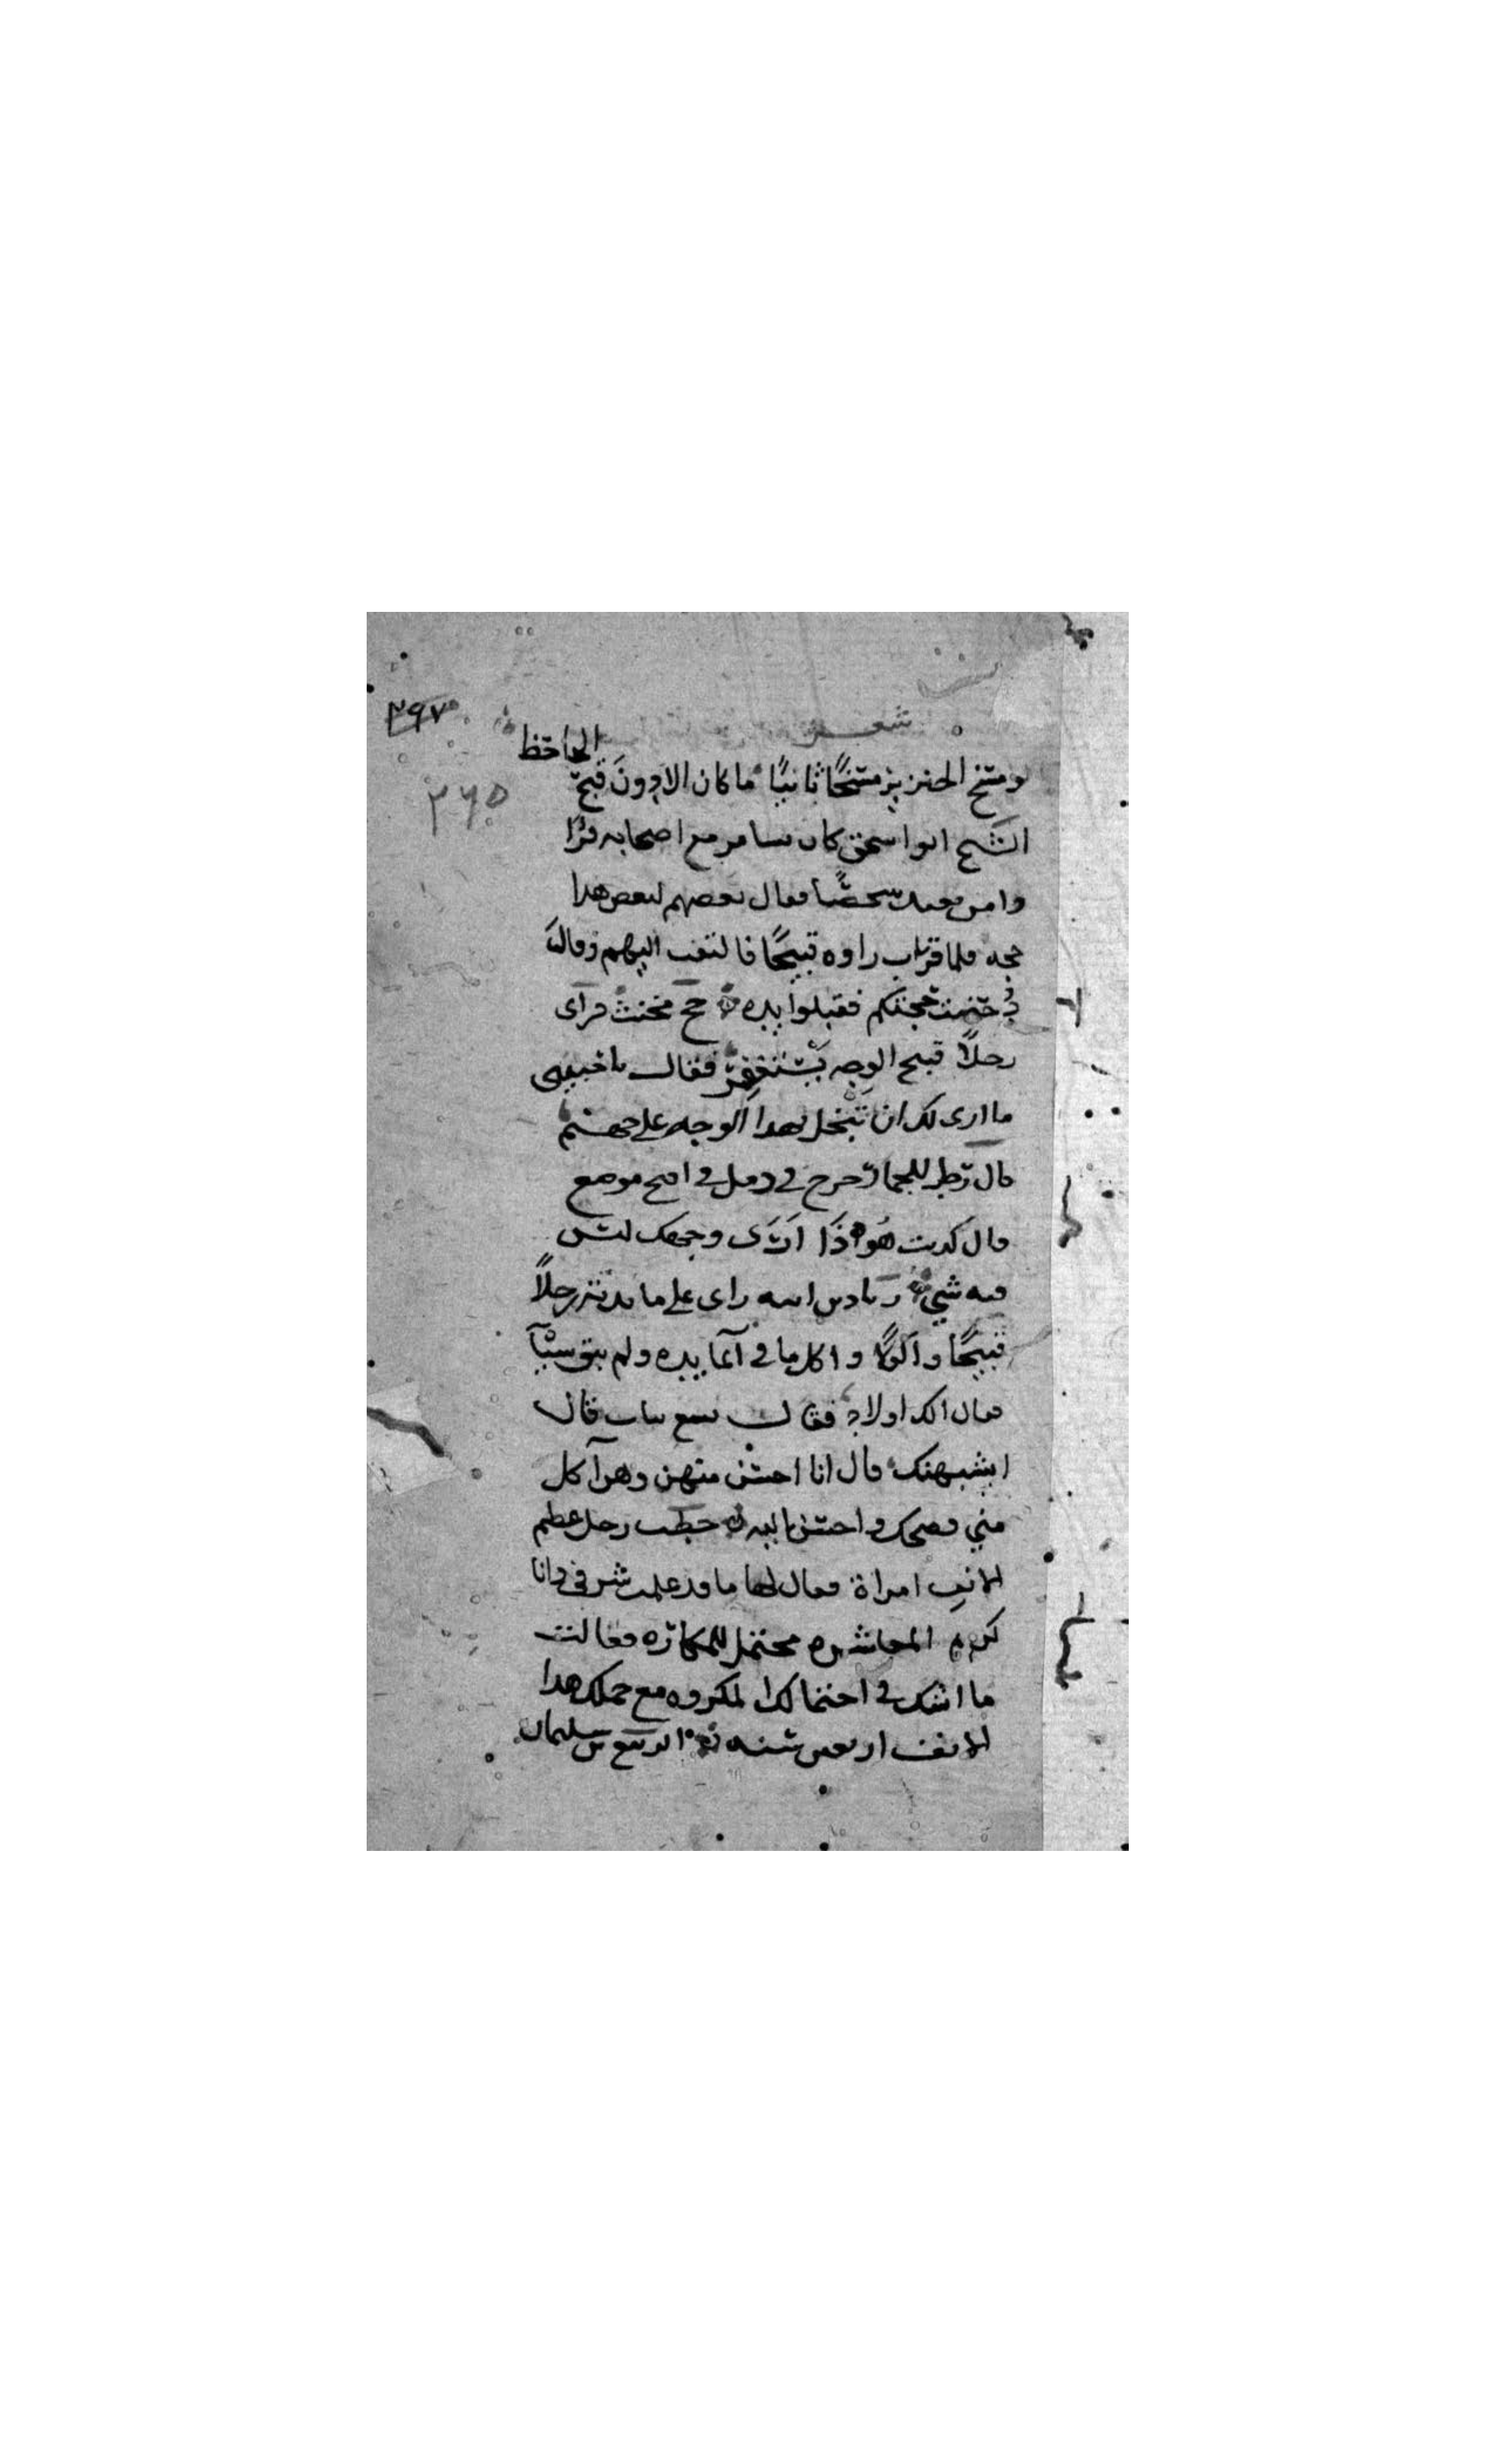 ٢٩٧
شعر
الجاحظ
٢٦٥
لو مسخ الخنزير مسخًا ثانيًا ما كان الا دونَ قبح
الشيخ ابو اسحق كان يساير مع اصحابه
من بعيد شخصًا فقال بعضهم لبعض هذا
فلما قرب راوه قبيحًا فالتفت اليهم وقال
فقبلوا يده حج مخنث فرأى
رجلاً قبيح الوجه يستغفر فقال يا حبيبي
ما ارى لك ان تبخل بهذا الوجه على جهنم
قال رجل للجماز خرج لي دمل في اقبح موضع
قال كذبت هُوَ ذَا اَرَى وجهك ليس
فيه شيء زياد بن ابيه راى على مايدته رجلاً
قبيحًا واكولًا واكل ما في المايده ولم يبق شيئًا
فقال الك اولاد فقال تسع بنات قال
ايشبهنك قال انا احسن منهن وهن آكل
مني فضحك واحسن اليه خطب رجل عظيم
الانف امراة فقال لها ما قد علمت شرفي وانا
كريم المعاشره محتمل للمكاره فقالت
ما اشك في احتمالك المكروه مع حملك هذا
الانف اربعين سنه الربيع بن سليمان